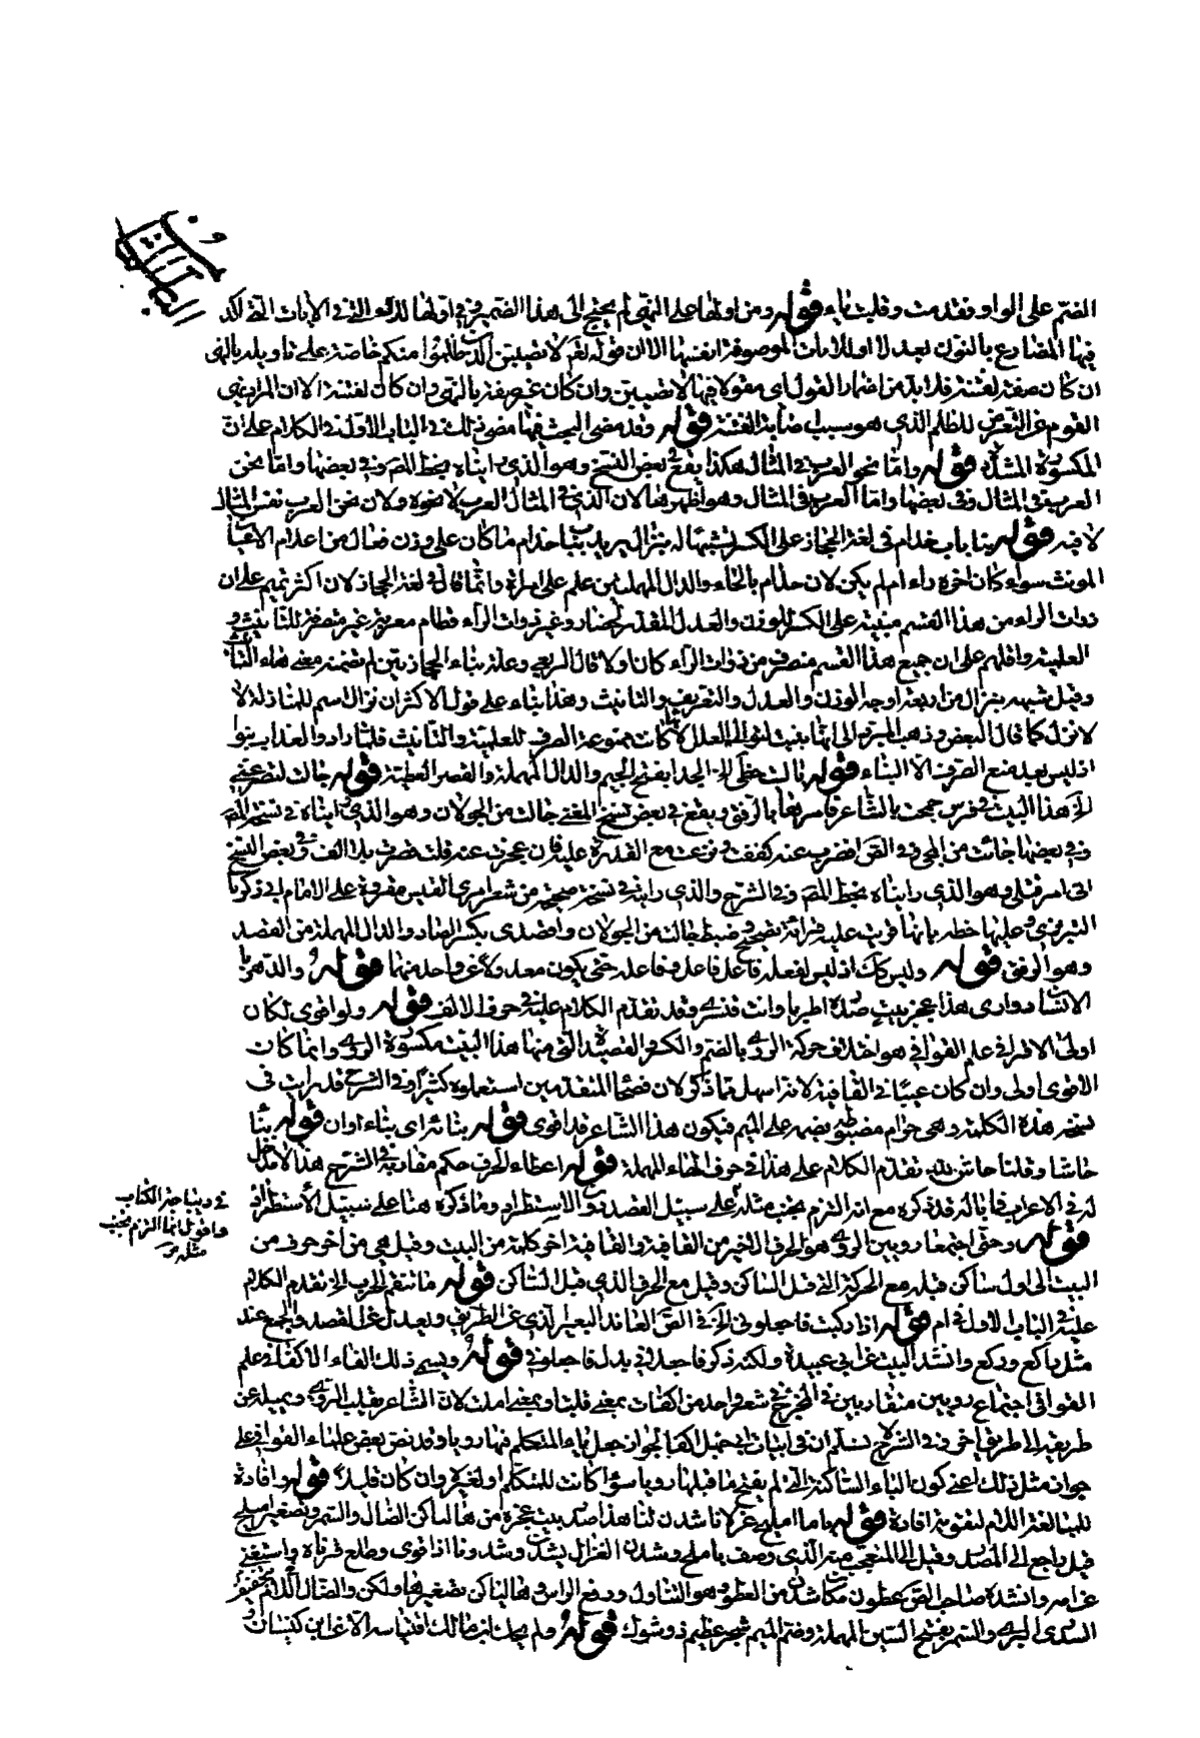 الضم على الواو وتقدمت وقلبت ياء قوله ومن اولها على النهي لم يحتج الى هذا الضمير في اولها لذلك التي في الايات التي اكد
فيها المضارع بالنون بعد لا اوللايات الموصوفة انفسها الا ان قوله تعالى لا تصيبن الذين ظلموا منكم خاصة على تاويله بالنهي
ان كان صفة لفتنة فلا بد من اضمار القول اي مقولا فيها لا تصيبن وان كان غير صفة بالنهي وان كان لفتنة الا ان المراد نهي
القوم عن التعرض للظلم الذي هو سبب اصابة الفتنة قوله وقد مضى البحث فيما مضى ذلك في الباب الاول في الكلام على ان
المكسورة المشددة قوله واما نحو العرب في المثال هكذا يقع في بعض النسخ وهو الذي رايناه بخط المص وفي بعضها واما نحن
العرب في المثال وفي بعضها واما العرب في المثال وهو اظهرها لان الذي في المثال العرب لا نحوه ولان نحن العرب نفس المثال
لا فيه قوله بنا باب حذام في لغة الحجاز على الكسر لشبهها له بنزال يريد بباب حذام ما كان على وزن فعال من اعلام الاعيان
المونث سواء كان اخره راء ام لم يكن لان حذام بالحاء والدال المهملتين علم على امراة وانما قال في لغة الحجاز لان اكثر تميم على ان
ذوات الراء من هذا القسم مبنية على الكسر للوزن والعدل المقدر كحضار وغير ذوات الراء كقطام معربة غير منصرفة للتانيث و
العلمية واقلهم على ان جميع هذا القسم منصرف من ذوات الراء كان اولا قال الربعي وعلة بناء الحجازيين لم تضمنه معنى هاء التانيث
وقيل شبهه بنزال من اربعة اوجه الوزن والعدل والتعريف والتانيث وهذا بناء على قول الاكثر ان نزال اسم للمنازلة لا
لانزل كما قال البعض وذهب المبرد الى انها بنيت لتوالي العلل لانها كانت ممنوعة الصرف للعلمية والتانيث فلما زاد والعدل بنوا
اذ ليس بعد منع الصرف الا البناء قوله نالت حظي الخ الجدا بفتح الجيم والدال المهملة والقصر العطية قوله جالت لتصرعني
الخ هذا البيت في فرس جمحت بالشاعر فامر لها بالرفق ويقع في بعض نسخ المغني جالت من الجولان وهو الذي رايناه في نسخة المص
وفي بعضها جاءت من المجي وفي القص اقصرت عنه كففت ونزعت مع القدرة عليه فان عجزت عنه قلت قصرت بلا الف وفي بعض النسخ
اني امر قتلي وهو الذي رايناه بخط المص وفي الشرح والذي رايته في نسخة صحيحة من شعر امرئ القيس مقروة على الامام ابي زكريا
التبريزي وعليها خطه بانها قريت عليه قراءة تصحيح وضبط جالت من الجولان واقصدي بكسر الصاد والدال المهملة من القصد
وهو الرفق قوله وليس كك اذ ليس لفعله فاعل فاعل وفاعله حتى يكون معدولا عن واحد منهما قوله والدهر با
الانسان دواري هذا عجز بيت صدره اطربا وانت قنسري وقد تقدم الكلام عليه في حرف الالف قوله ولو اقوى لكان
اولى الاقوا في علم القوافي هو اختلاف حركة الروي بالضم والكسر والقصيدة التي منها هذا البيت مكسورة الروي وانما كان
الاقوى اولى وان كان عيبا في القافية لانه اسهل مما ذكر لان فصحا المتقدمين استعملوه كثيرا وفي الشرح قد رايت في
نسخة هذه الكلمة وهي حرام مضبوطة بضمة على الميم فيكون هذا الشاعر قد اقوى قوله بنائه اي بناء اوان قوله بنا
حاشا وقلنا حاش لله تقدم الكلام على هذا في حرف الحاء المهملة قوله اعطاء الحرف حكم مقاربه في الشرح هذا لا مدخل
له في الاعراب فما باله قد ذكره مع انه التزم تجنب مثله على سبيل القصد والاستطراد وما ذكره هنا على سبيل الاستطراد
قوله وحتى اجتمعا رويين الروي هو الحرف الاخير من القافية والقافية اخر كلمة من البيت وقيل هي من اخر حرف من
البيت الى اول ساكن قبله مع الحركة التي قبل الساكن وقيل مع الحرف الذي قبل الساكن قوله ما تنقم الحرب الخ تقدم الكلام
عليه في الباب الاول في ام قوله اذا ركبت فاجعلوني الخ في القص العاند البعير الذي عن الطريق ويعدل عن القصد والجمع عند
مثل راكع وركع وانشد البيت عن ابي عبيدة ولكنه ذكر فاجعلاني بدل فاجعلوني قوله ويسمى ذلك الفاء الاكفاء في علم
القوافي اجتماع رويين متقاربين في المخرج في شعر واحد من اكفات بمعنى قلبت او بمعنى املت لان الشاعر يقلب الروي ويميله عن
طريقه الى طريق اخرى وفي الشرح لا نسلم ان في ابيات ابي جهل اكفا لجواز جعل ياء المتكلم فيها رويا وقد نص بعض علماء القوافي على
جواز مثل ذلك اعني كون الياء الساكنة التي لم يفتح ما قبلها رويا سواء كانت للمتكلم او لغيره وان كان قليلا قوله وافادة
للمبالغة اللام لتقوية افادة قوله ياما اميلح غزلانا شدن لنا هذا صدر بيت عجزه من هاليائكن الضال والسمر وتصغير اميلح
قيل راجع الى المصدر وقيل الى المتعجب منه الذي وصف باملح وشدن الغزال يشدن شدونا اذا قوى وطلع قرناه واستغنى
عن امه وانشده صاحب الص عطون مكان شدن من العطو وهو التناول ورفع الراس وهاليائكن تصغير هاولئكن والضال اللام مخففة
السدر البري والسمر بفتح السين المهملة وضم الميم شجر عظيم ذو شوك قوله ولم يحك ابن مالك اقتياسه الا عن ابن كيسان
في ديباجة الكتاب
واقول انما التزم تجنب
مثله